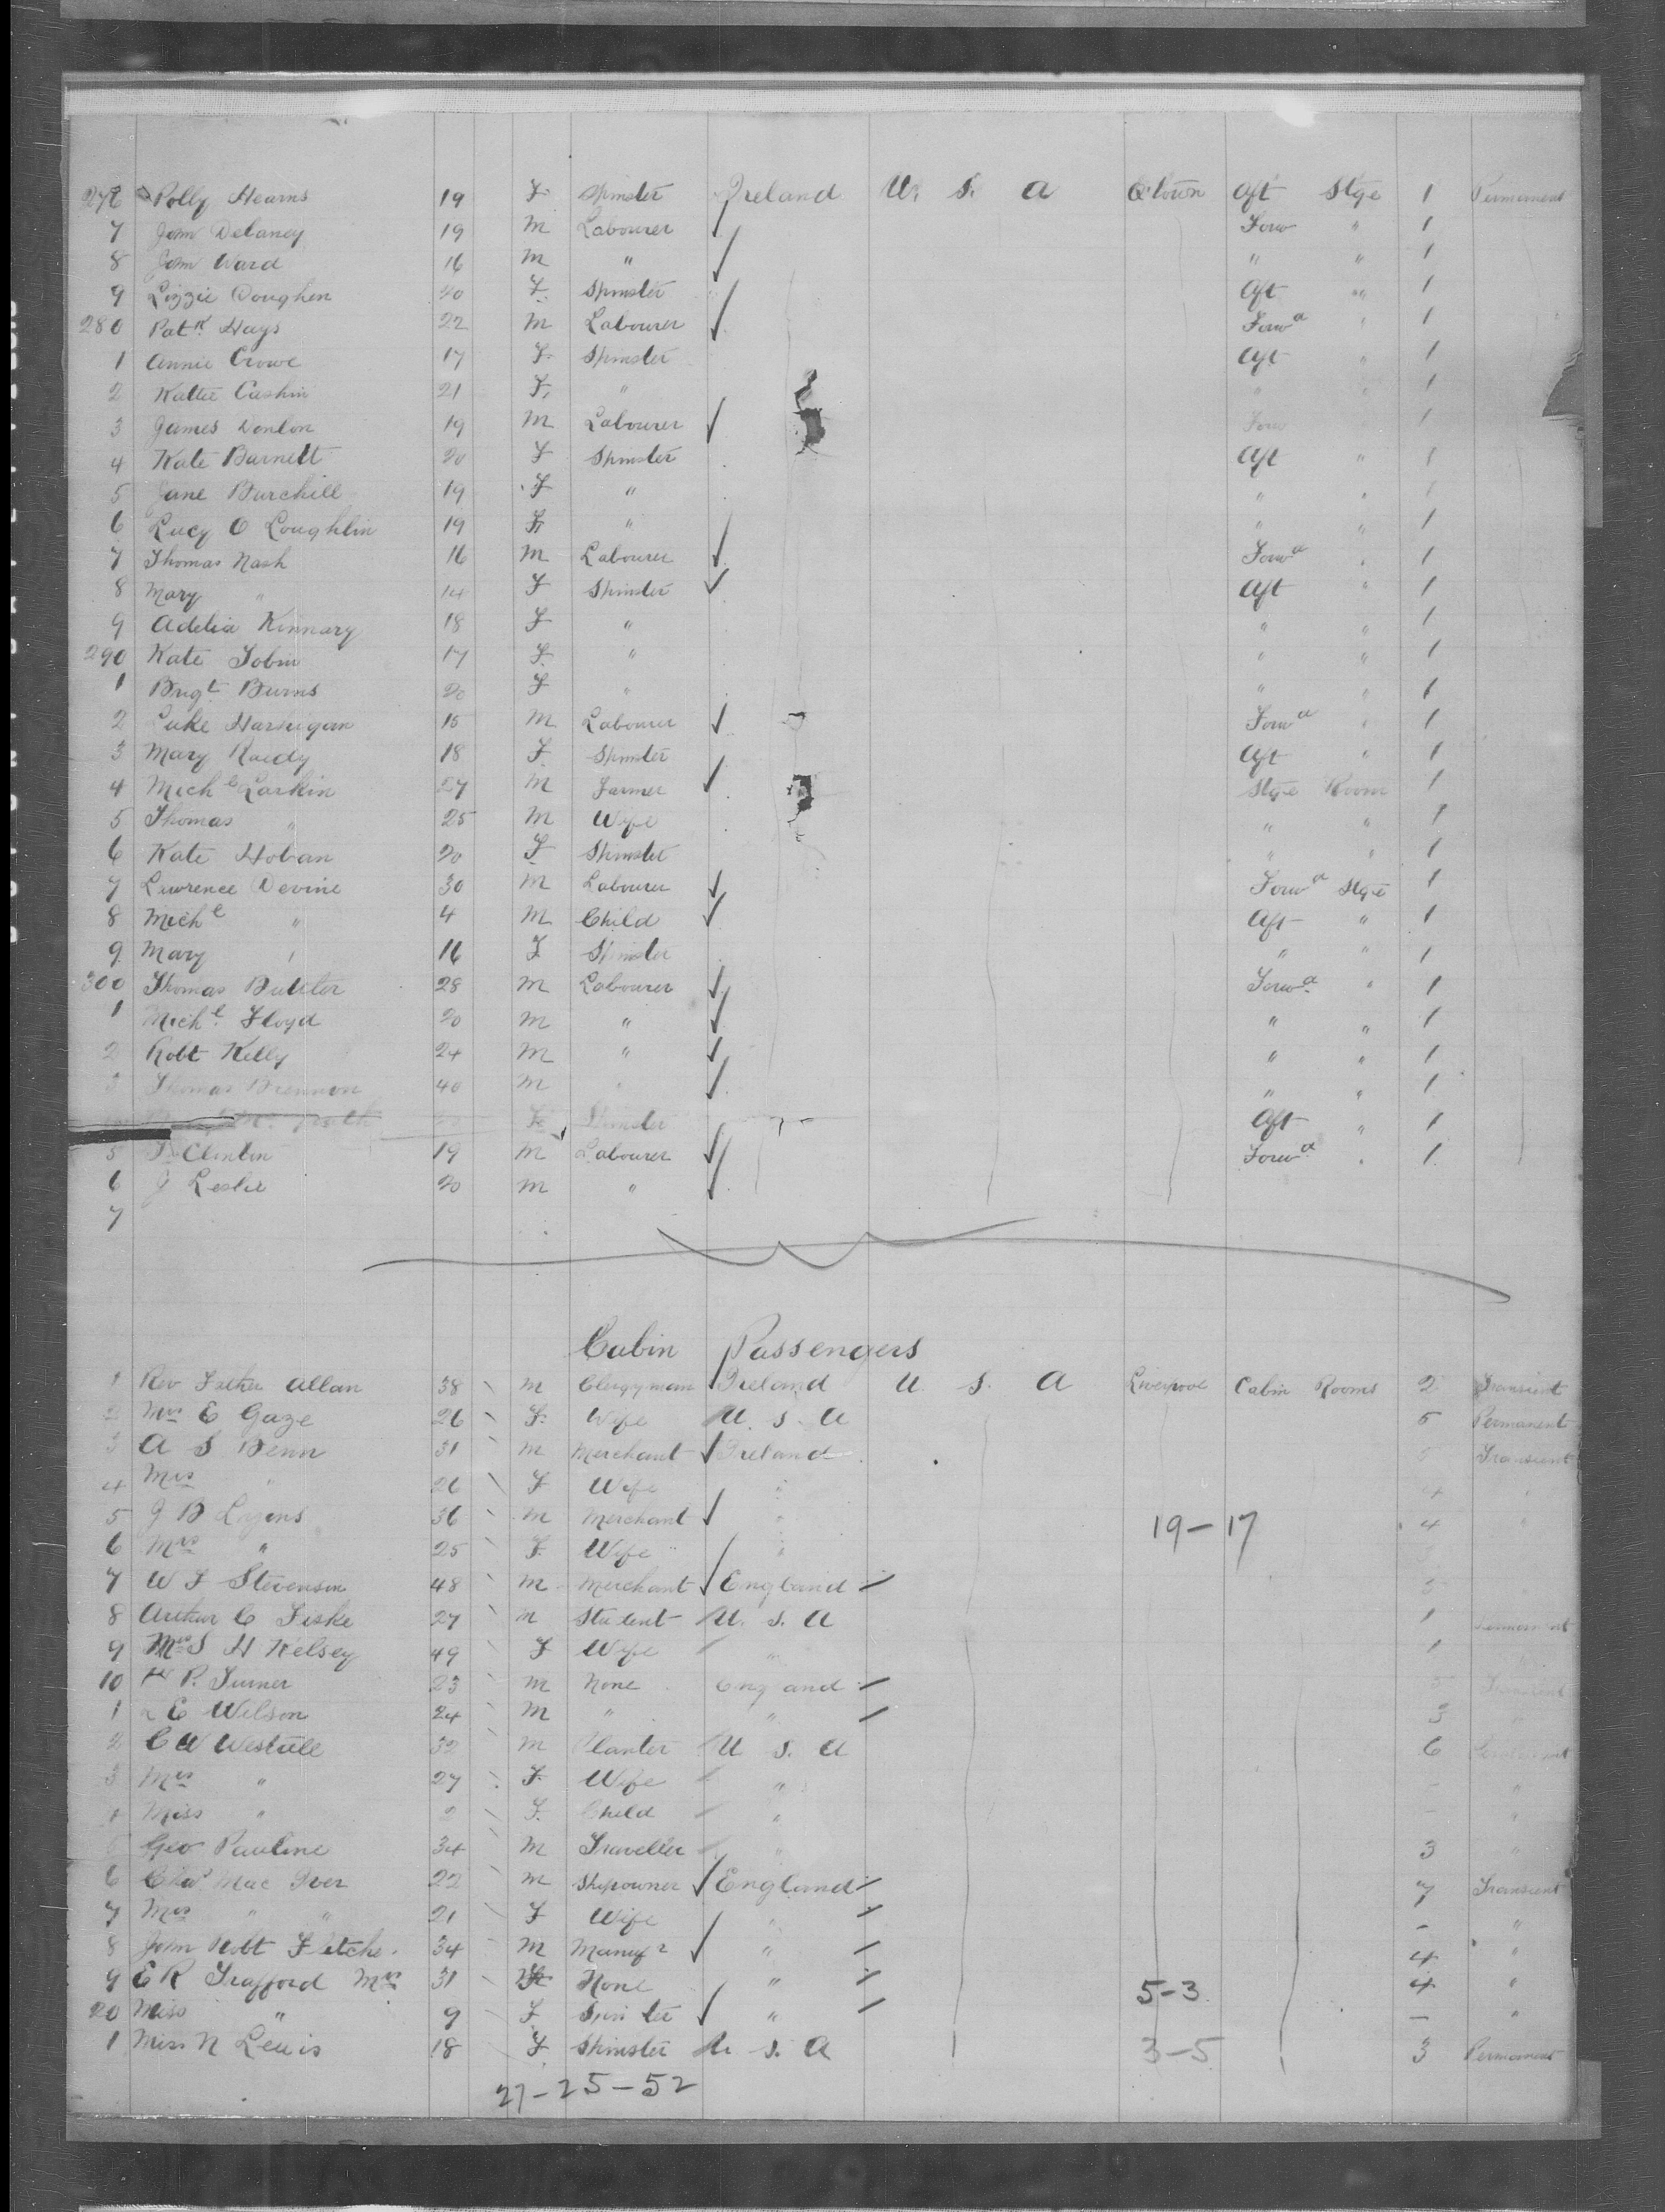 276 Polly Hearns 19 F Spinster Ireland U. S. A Q'town Aft Stge 1 Permanent
7 John Delaney 19 M Labourer Forw " 1
8 John Ward 16 M " " " 1
9 Lizzie Doughen 20 F Spinster Aft " 1
280 Patk Hays 22 M Labourer Forwd " 1
1 Annie Crowe 17 F Spinster Aft " 1
2 Kattie Cashin 21 F " " " 1
3 James Donlon 19 M Labourer Forw 1
4 Kate Barnett 20 F Spinster Aft " 1
5 Jane Burchill 19 F " " " 1
6 Lucy O Loughlin 19 F " " " 1
7 Thomas Nash 16 M Labourer Forwd " 1
8 Mary " 14 F Spinster Aft " 1
9 Adelia Kinnary 18 F " " " 1
290 Kate Tobin 17 F " " " 1
1 Brigt Burns 20 F " " " 1
2 Luke Harrigan 15 M Labourer Forwd " 1
3 Mary Raedy 18 F Spinster Aft " 1
4 Michl Larkin 27 M Farmer Stge Room 1
5 Thomas " 25 M Wife " " 1
6 Kate Hoban 20 F Spinster " " 1
7 Lawrence Devine 30 M Labourer Forwd Stge 1
8 Michl " 4 M Child Aft " 1
9 Mary " 16 F Spinster " " 1
300 Thomas Buttler 28 M Labourer Forwd " 1
1 Michl Floyd 20 M " " " 1
2 Robt Kelly 24 M " " " 1
3 Thomas Brennon 40 M " " " 1
F Spinster Aft " 1
5 T Clinton 19 M Labourer Forwd " 1
6 J Leslie 20 M " 
7
Cabin Passengers
1 Rev Father Allan 38 M Clergyman Ireland U. S. A Liverpool Cabin Rooms 2 Transient
2 Mrs E Gaze 26 F Wife U. S. A 5 Permanent
3 A S Benn 31 M Merchant Ireland Transient
4 Mrs " 26 F Wife " 4 "
5 J B Lyons 36 M Merchant " 19-17 4 "
6 Mrs " 25 F Wife "
7 W F Stevenson 48 M Merchant England 5
8 Arthur C Fiske 27 M Student U. S. A 1 Permanent
9 Mrs S H Kelsey 49 F Wife " 1 "
10 P. Turner 23 M None England 5 Transient
1 E Wilson 24 M " " 3 "
2 C W Westall 32 M Planter U S. A 6 Permanent
3 Mrs " 27 F Wife " - "
4 Miss " 2 F Child " - "
5 Geo Pauline 34 M Traveller " 3 "
6 Chas Mac Iver 22 M Shipowner England 7 Transient
7 Mrs " " 21 F Wife " - "
8 John Robt Fletcher 34 M Manufr " 4 "
9 E R Trafford Mrs 31 F None " 5-3 4 "
20 Miss " 9 F Spinster " - "
1 Miss N Lewis 18 F Spinster U. S. A 3-5 3 Permanent
27-25-52